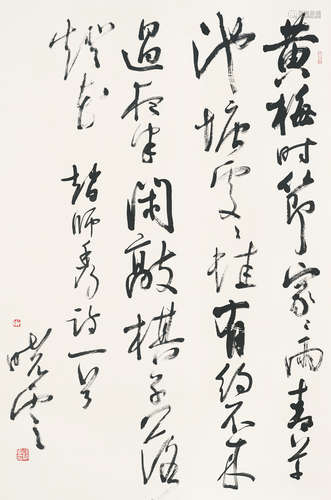 黄梅时节家々雨青草
池塘处々蛙有约不来
过夜半闲敲棋子落
灯花
赵师秀诗一首
晓云